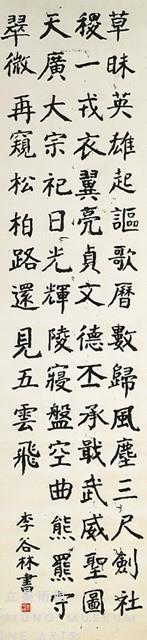 草昧英雄起謳歌曆數歸風塵三尺劍社
稷一戎衣翼亮貞文德丕承戢武威聖圖
天廣大宗祀日光輝陵寢盤空曲熊羆守
翠微再窺松柏路還見五雲飛
李谷林書
立美術
MUSEUM
INE ARTS